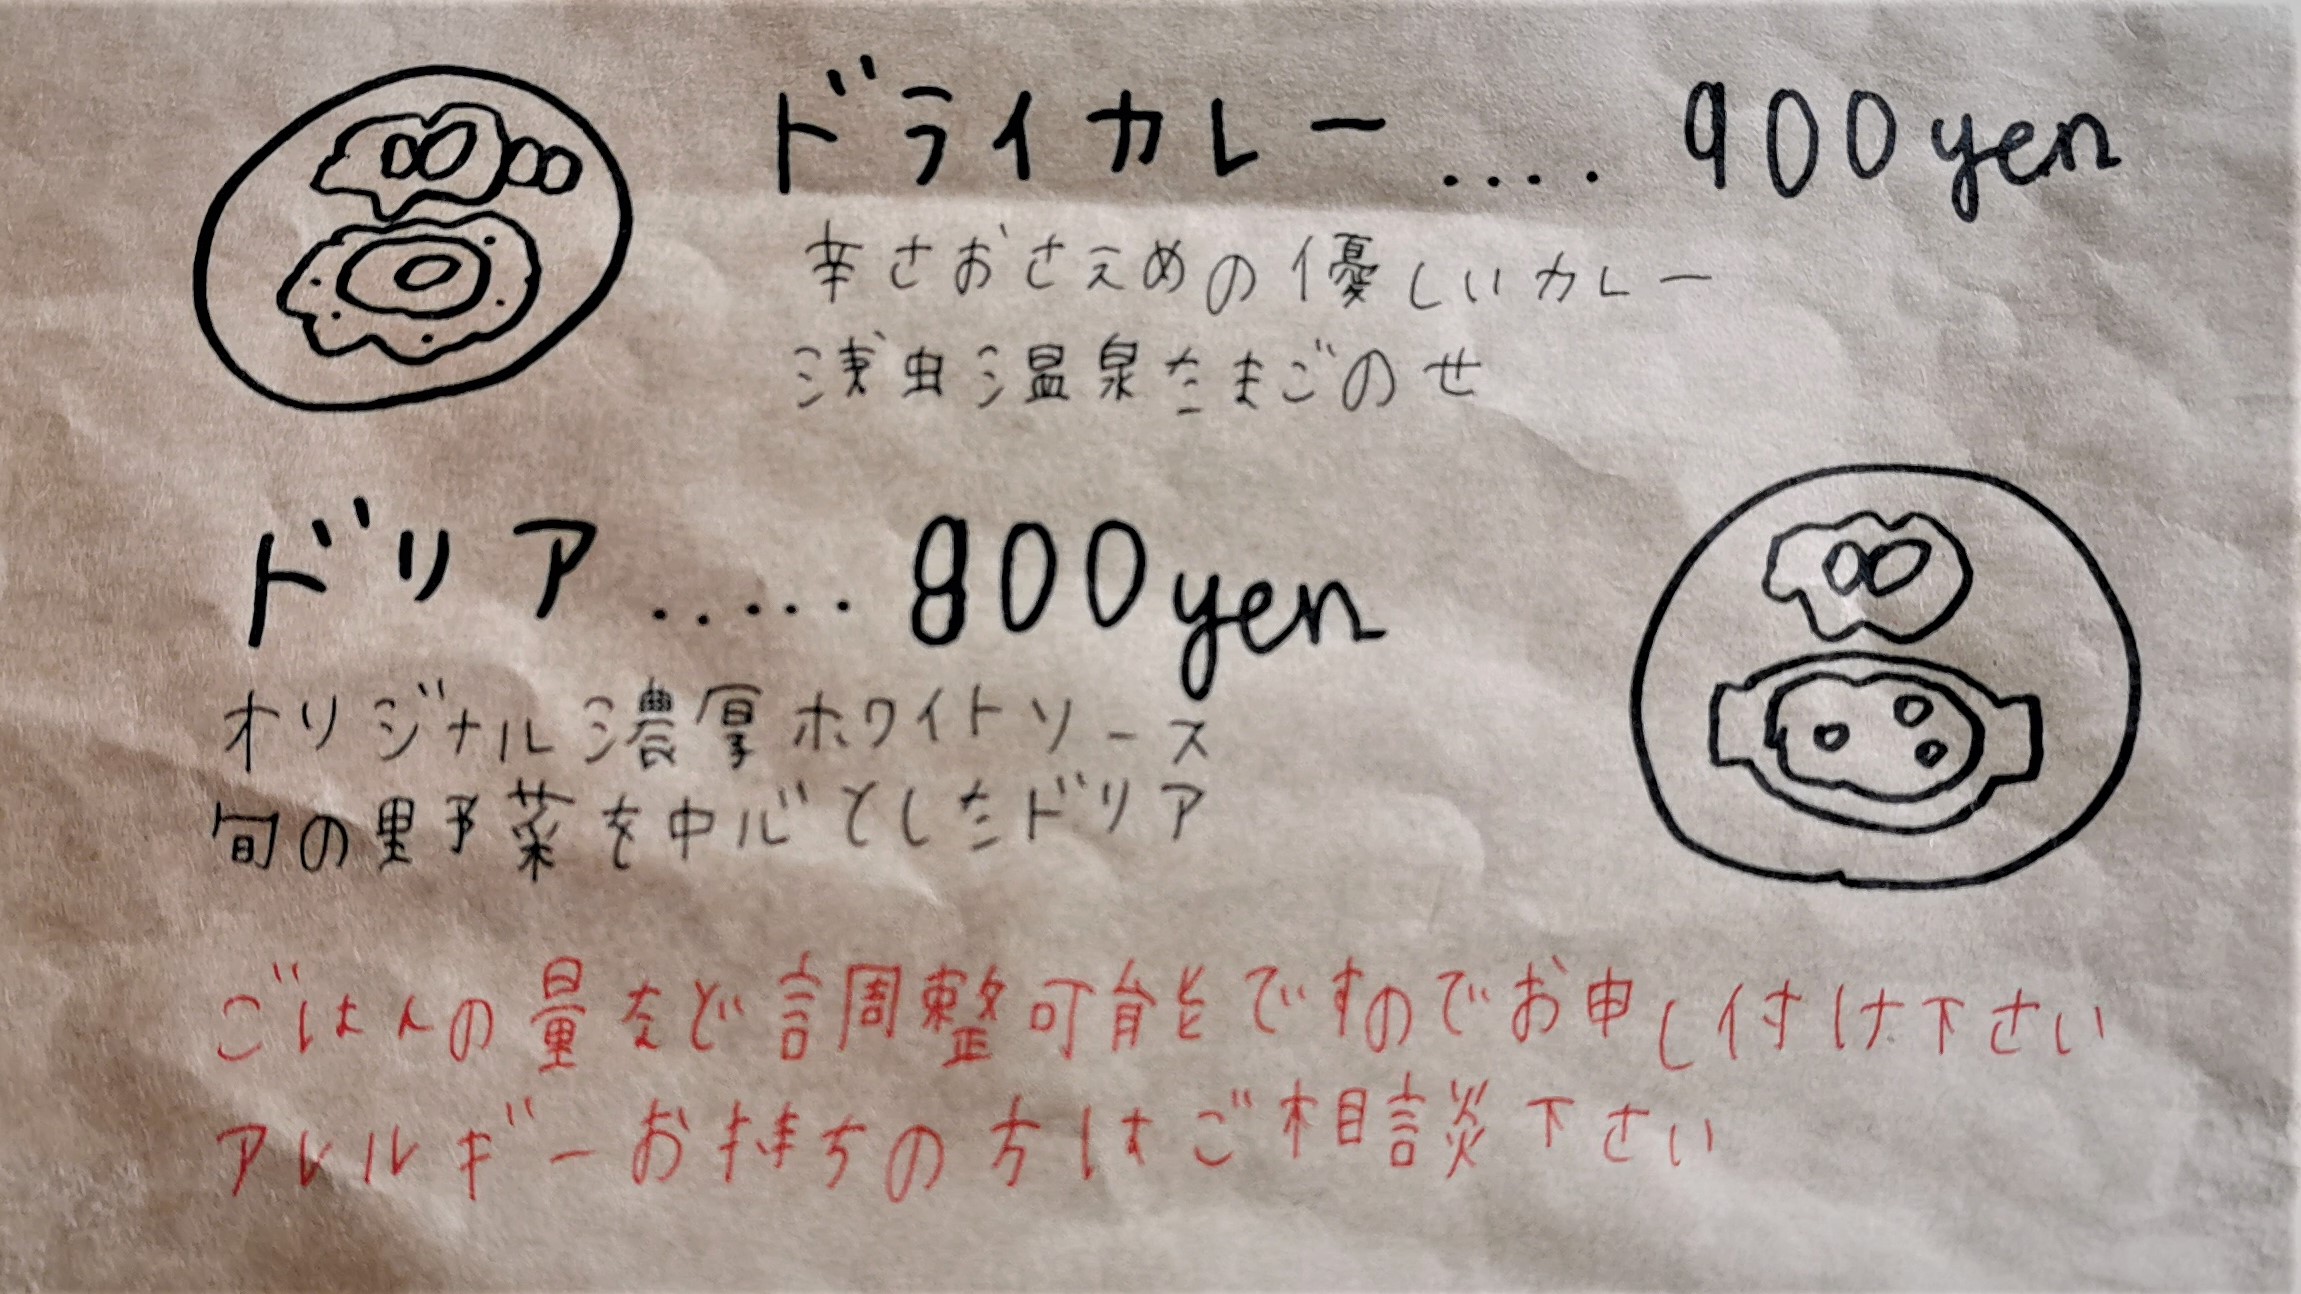 ドライカレー.... 900yen
辛さおさえめの優しいカレー
浅虫温泉たまごのせ
ドリア..... 800yen
オリジナル濃厚ホワイトソース
旬の野菜を中心としたドリア
ごはんの量など調整可能ですのでお申し付け下さい
アレルギーお持ちの方はご相談下さい